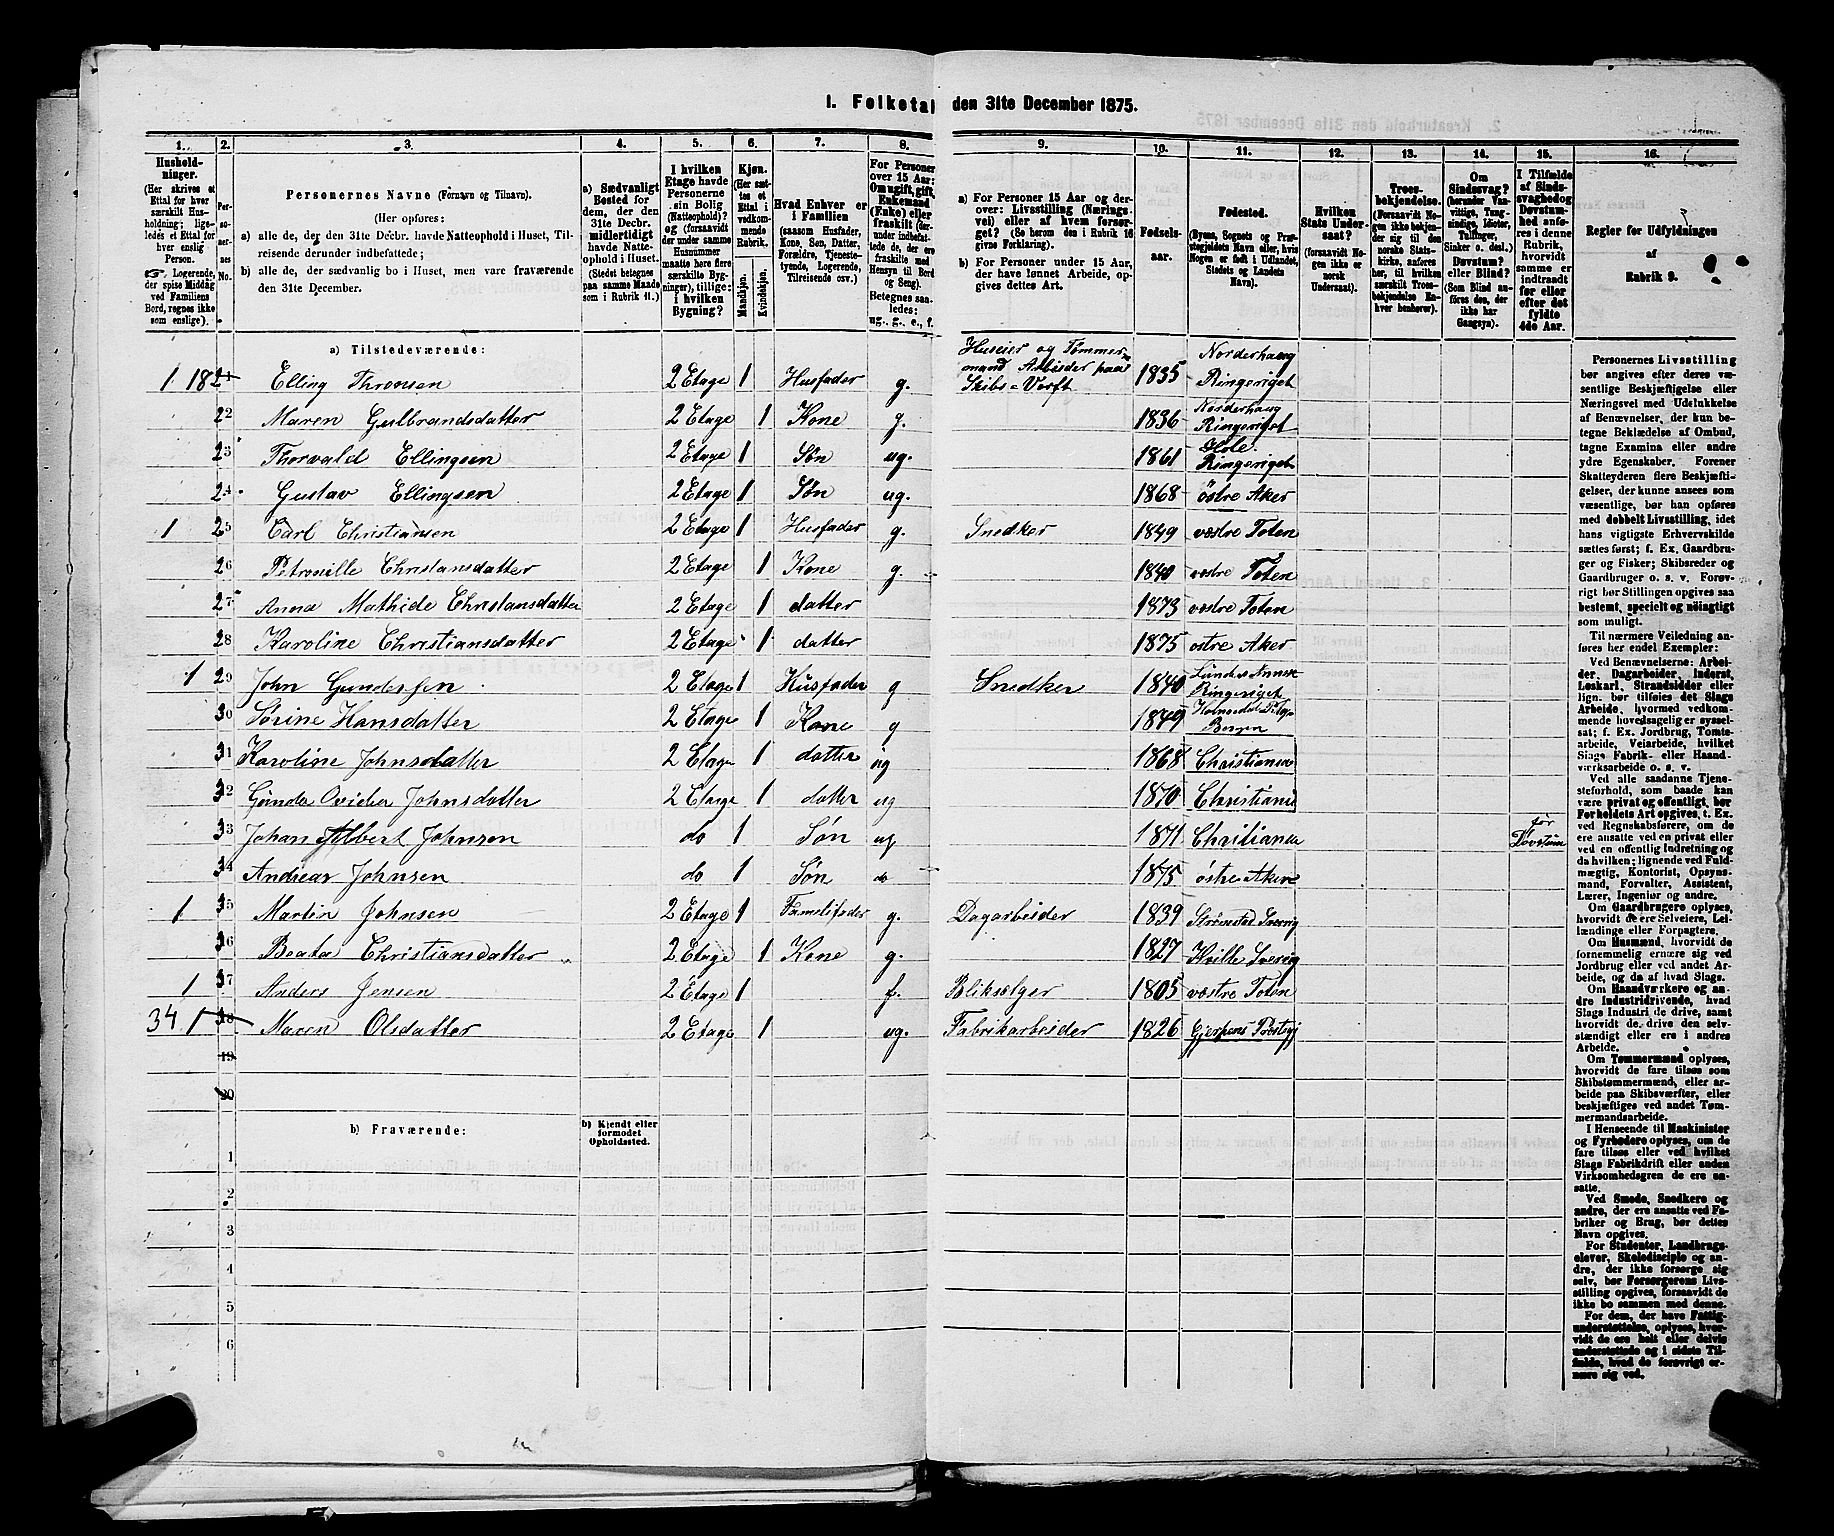 1. Folketal den 31te December 1875.
1. 2. 3. 4. 5. 6. 7. 8. 9. 10. 11. 12. 13. 14. 15. 16.
Hushold-
ninger.
(Her skrives et
Ettal for hver
særskilt Hus-
holdning; lige-
ledes et Ettal for
hver enslig
Person.
Logerende,
der spise Middag
ved Familiens
Bord, regnes ikke
som enslige).
Per-
so-
ner-
nes
No.
Personernes Navne (Fornavn og Tilnavn).
(Her opføres:
a) alle de, der den 31te Decbr. havde Natteophold i Huset, Til-
reisende derunder indbefattede;
b) alle de, der sædvanlig bo i Huset, men vare fraværende
den 31te December.
a) Sædvanligt
Bosted for
dem, der den
31te Decbr. havde
midlertidigt
Natte-
ophold i Huset.
(Stedet betegnes
paa samme Maade
som i Rubrik 11.)
I hvilken
Etage havde
Personerne
sin Bolig
(Natteophold)?
og (forsaavidt
der under samme
Husnummer
maatte høre flere
særskilte Byg-
ninger), tillige:
i hvilken
Bygning?
Kjøn.
(Her sæt-
tes et
Ettal i
vedkom-
mende
Rubrik.
Mandkjøn.
Kvindekjøn.
Hvad Enhver er
i Familien
(saasom Husfader,
Kone, Søn, Datter,
Forældre, Tjeneste-
tyende, Logerende,
Tilreisende osv.)
For Personer
over 15 Aar:
Om ugift, gift,
Enkemand
(Enke) eller
fraskilt (der-
under indbefat-
tede de, der ere
fraskilte med
Hensyn til Bord
og Seng).
Betegnes saa-
ledes:
ug., g., e., f.
a) For Personer 15 Aar og der-
over: Livsstilling (Nærings-
vei) eller af hvem forsør-
get? (Se herom den i Rubrik 16
givne Forklaring).
b) For Personer under 15 Aar,
der have lønnet Arbeide, op-
gives dettes Art.
Fødsels-
aar.
Fødested.
(Byens, Sognets og Præ-
stegjeldets Navn eller, hvis
Nogen er født i Udlandet,
Stedets og Landets
Navn).
Hvilken
Stats Under-
saat?
(forsaavidt No-
gen ikke er
norsk
Undersaat).
Troes-
bekjendelse.
(Forsaavidt No-
gen ikke bekjen-
der sig til den
norske Stats-
kirke, anføres
her, til hvilken
særskilt Troes-
bekjendelse En-
hver henhører).
Om
Sindssvag?
(herunder Van-
vittige, Tung-
sindige, Idioter,
Tullinger,
Sinker o. desl.)
Døvstum?
eller Blind?
(Som Blind an-
føres den, der
ikke har
Gangsyn).
I Tilfælde
af Sinds-
svaghed og
Døvstum-
hed anfø-
res i denne
Rubrik,
hvorvidt
samme er
indtraadt
før eller
efter det
fyldte
4de Aar.
Regler for Udfyldningen
af
Rubrik 9.
a) Tilstedeværende:
Huseier og Tømmer-
mand Arbeider paa
1 18 21 Elling Thronsen 2 Etage 1 Husfader g. Skibs=Verft 1835 Norderhaug Ringeriget
22 Maren Gulbrandsdatter 2 Etage 1 Kone g. 1836 Norderhaug Ringeriget
23 Thorvald Ellingsen 2 Etage 1 Søn ug. 1861 Hole Ringeriget
24 Gustav Ellingsen 2 Etage 1 Søn ug. 1868 østre Aker
1 25 Carl Christiansen 2 Etage 1 Husfader g. Snedker 1849 vestre Toten
26 Petronille Christansdatter 2 Etage 1 Kone g. 1840 vestre Toten
27 Anna Mathide Christansdatter 2 Etage 1 datter 1873 vestre Toten
28 Karoline Christiansdatter 2 Etage 1 datter 1875 ostre Aker
1 29 John Gundersen 2 Etage 1 Husfader g Snedker 1840 Lunder Annex Ringeriget
30 Sørine Hansdatter 2 Etage 1 Kone g 1849 Bergen
31 Karoline Johnsdatter 2 Etage 1 datter ug 1868 Christiania
32 Gunda Ovidia Johnsdatter 2 Etage 1 datter ug 1870 Christiania
33 Johan Albert Johnsen do 1 Søn ug 1871 Chritiania før Døvstum
34 Andreas Johnsen do 1 Søn do 1875 østre Aker
1 35 Martin Johnsen 2 Etage 1 Familifader g. Dagarbeider 1839 Strømstad Sverig
36 Beata Christiansdatter 2 Etage 1 Kone g. 1827 Hville Sverig
1 37 Anders Jensen 2 Etage 1 f. Bliksælger 1805 vestre Toten
34 1 38 Maren Olsdatter 2 Etage 1 ug. Fabrikarbeider 1826 Gjerpens Prestegj
19
20
b) Fraværende:
b) Kjendt eller
formodet
Opholdssted.
1
2
3
4
5
6
Personernes Livsstilling
bør angives efter deres væ-
sentlige Beskjæftigelse eller
Næringsvei med Udelukkelse
af Benævnelser, der kun be-
tegne Beklædelse af Ombud,
tagne Examina eller andre
ydre Egenskaber. Forener
Skatteyderen flere Beskjæfti-
gelser, der kunne ansees som
væsentlige, bør han opføres
med dobbelt Livsstilling, idet
hans vigtigste Erhvervskilde
sættes først; f. Ex. Gaardbru-
ger og Fisker; Skibsreder og
Gaardbruger o. s. v. Forøv-
rigt bør Stillingen opgives saa
bestemt, specielt og nøiagtigt
som muligt.
Til nærmere Veiledning an-
føres her endel Exempler:
Ved Benævnelserne: Arbei-
der, Dagarbeider, Inderst,
Løskarl, Strandsidder eller
lign. bør tilføies det Slags
Arbeide, hvormed vedkom-
mende hovedsagelig er syssel-
sat; f. Ex. Jordbrug, Tomte-
arbeide, Veiarbeide, hvilket
Slags Fabrik- eller Haand-
værksarbeide o. s. v.
Ved alle saadanne Tjene-
steforhold, som baade kan
være privat og offentligt, bør
Forholdets Art opgives, t. Ex.
ved Regnskabsførere, om de
ere ansatte ved en privat eller
ved en offentlig Indretning og
da hvilken; lignende ved Fuld-
mægtig, Kontorist, Opsyns-
mand, Forvalter, Assistent,
Lærer, Ingeniør og andre.
Om Gaardbrugere oplyses,
hvorvidt de ere Selveiere, Lei-
lændinge eller Forpagtere.
Om Husmænd, hvorvidt de
fornemmelig ernære sig ved
Jordbrug eller ved andet Ar-
beide, og da af hvad Slags.
Om Haandværkere og an-
dre Industridrivende, hvad
Slags Industri de drive, samt
hvorvidt de drive den selv-
stændigt eller ere i andres
Arbeide.
Om Tømmermænd oplyses,
hvorvidt de fare tilsøs som
Skibstømmermænd, eller ar-
beide paa Skibsværfter, eller
beskjæftiges ved andet Tøm-
mermandsarbeide.
I Henseende til Maskinister
og Fyrbødere oplyses, om de
fare tilsøs eller ved hvilket
Slags Fabrikdrift eller anden
Virksomhedsgren de ere an-
satte.
Ved Smede, Snedkere og
andre, der ere ansatte ved Fa-
briker og Brug, bør dettes
Navn opgives.
For Studenter, Landbrugs-
elever, Skoledisciple og an-
dre, der ikke forsørge sig
selv, bør Forsørgerens Livs-
stilling opgives, forsaavidt de
ikke bo sammen med denne.
For dem, der have Fattig-
understøttelse, oplyses, hvor-
vidt de ere helt eller delvis
understøttede og i sidste Til-
fælde, hvad de forøvrigt er-
nære sig ved.